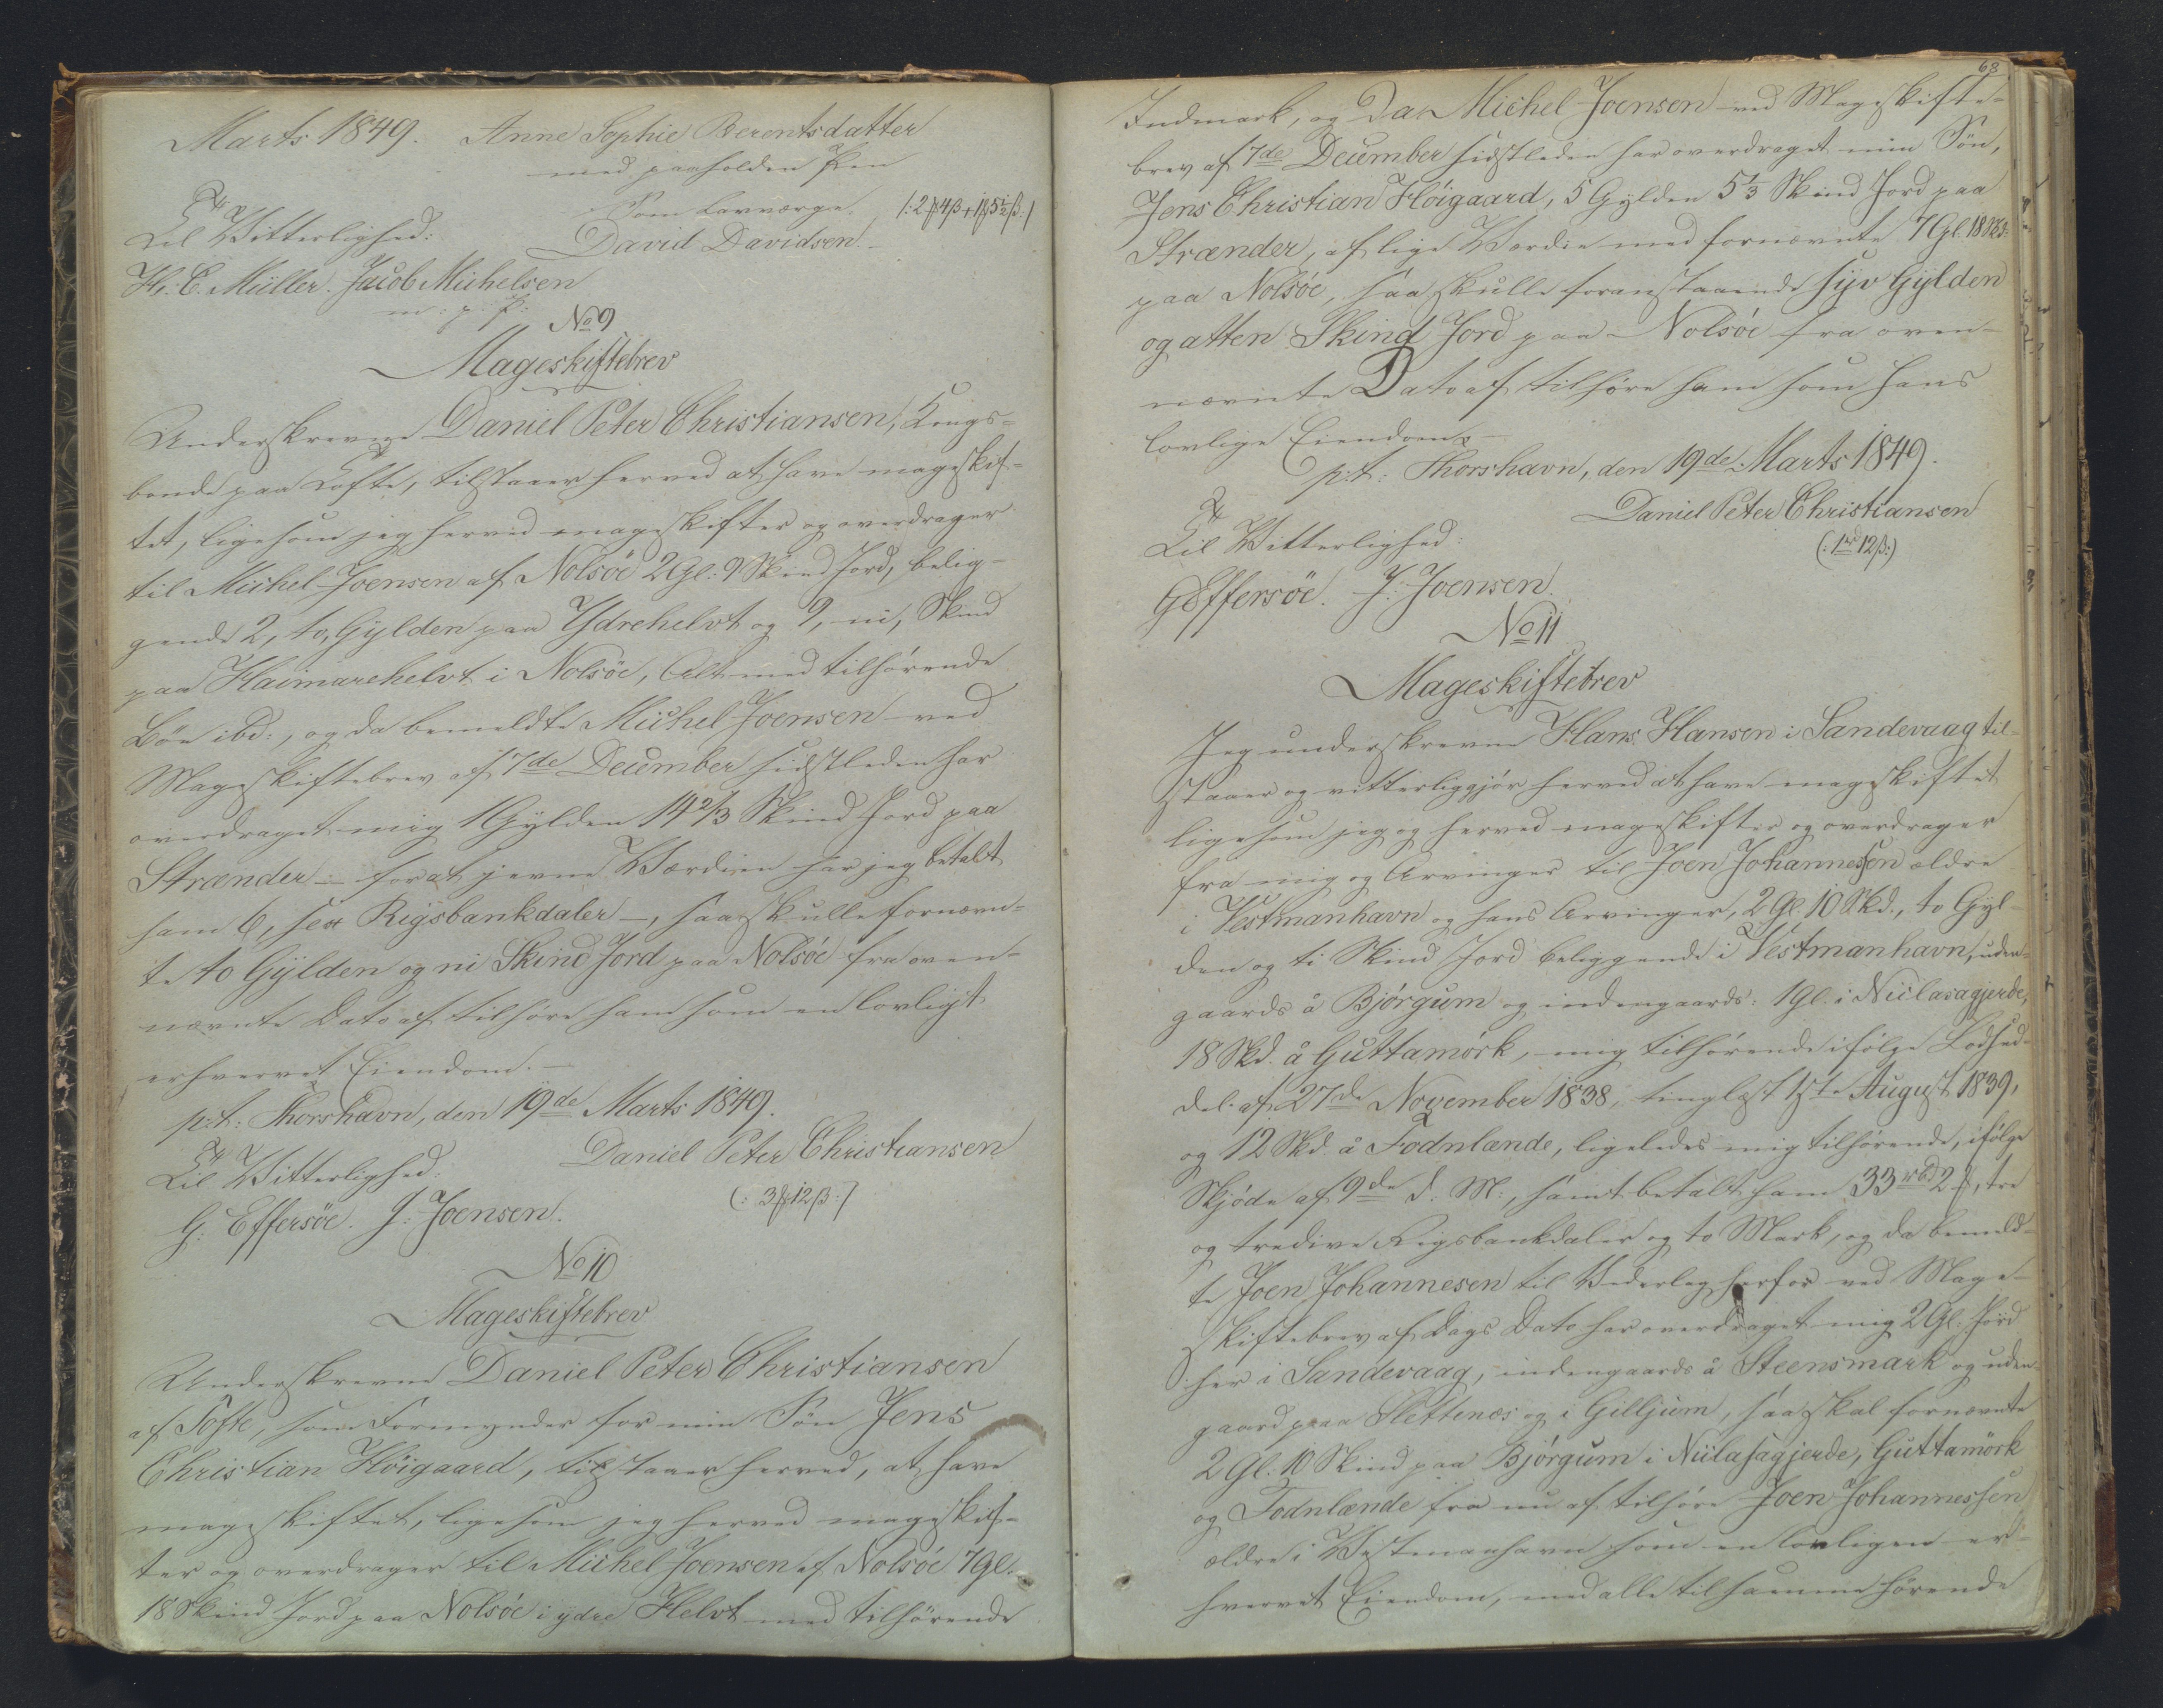 Marts 1849. Anne Sophie Berentsdatter
med paaholden Pen
Som Lavværge.
Til Vitterlighed:
David Davidsen.
H. C. Müller. Jacob Michelsen
m: p: p:
No 9
Mageskiftebrev
Underskrevne Daniel Peter Christiansen, Kongs-
bonde paa Tofte, tilstaaer herved at have mageskif-
tet, ligesom jeg herved mageskifter og overdrager
til Michel Joensen af Nolsöe 2 Gl: 9 Skind Jord, belig-
gende 2, to, Gylden paa Ydrehelvt og 9, ni, Skind
paa Haimarehelvt i Nolsöe, Alt med tilhørende
Böe ibd:, og da bemeldte Michel Joensen ved
Mageskiftebrev af 7de December sidstleden har
overdraget mig 1 Gylden 14 2/3 Skind Jord paa
Strænder – for at jevne Værdien har jeg betalt
ham 6, sex Rigsbankdaler –, saa skulle fornævn-
te to Gylden og ni Skind Jord paa Nolsöe fra oven-
nævnte Dato af tilhøre ham som en lovligt
erhvervet Eiendom. –
p:t: Thorshavn, den 19de Marts 1849.
Til Vitterlighed:
Daniel Peter Christiansen
G. Effersöe. J: Joensen.
No 10
Mageskiftebrev
Underskrevne Daniel Peter Christiansen
af Tofte, som Formynder for min Søn Jens
Christian Höigaard, tilstaaer herved, at have
mageskiftet, ligesom jeg herved mageskif-
ter og overdrager til Michel Joensen af Nolsöe 7 Gl.
18 Skind Jord paa Nolsöe i ydre Helvt med tilhørende
63
Indmark, og Da Michel Joensen ved Mageskifte-
brev af 7de December sidstleden har overdraget min Søn,
Jens Christian Höigaard, 5 Gylden 5 1/3 Skind Jord paa
Strænder, af lige Værdie med fornævnte 7 Gl. 18 Skd:
paa Nolsöe, saa skulle foranstaaende syv Gylden
og atten Skind Jord paa Nolsöe fra oven-
nævnte Dato af tilhøre ham som hans
lovlige Eiendom. –
p:t: Thorshavn, den 19de Marts 1849.
Til Vitterlighed:
Daniel Peter Christiansen
(: 1rd 12ß:)
G Effersöe. J: Joensen.
No 11
Mageskiftebrev
Jeg underskrevne Hans Hansen i Sandevaag til-
staaer og vitterliggjør herved at have mageskiftet
ligesom jeg og herved mageskifter og overdrager
fra mig og Arvinger til Joen Johannessen ældre
i Vestmanhavn og hans Arvinger, 2 Gl. 10 Skd., to Gyl-
den og ti Skind Jord beliggende i Vestmanhavn, uden-
gaards å Bjørgum og indengaards: 1 Gl. i Niclasagjerde,
18 Skd. å Guttamörk, mig tilhørende ifølge Lodsed-
del af 27de November 1838, tinglæst 1ste August 1839,
og 12 Skd. å Todnlænde, ligeledes mig tilhørende, ifølge
Skjøde af 9de d: M:, samt betalt ham 33 rbd 2 , tre
og tredive Rigsbankdaler og to Mark, og da bemeld-
te Joen Johannesen til Vederlag herfor ved Mage-
skiftebrev af Dags Dato har overdraget mig 2 Gl. Jord
her i Sandevaag, indengaards å Steensmark og uden-
gaard paa Slettenæs og i Gilljum, saa skal fornævnte
2 Gl. 10 Skind paa Bjørgum i Niilasagjerde, Guttamörk
og Todnlænde fra nu af tilhøre Joen Johannessen
ældre i Vestmanhavn som en lovligen er-
hvervet Eiendom, med alle tilsamme hørende